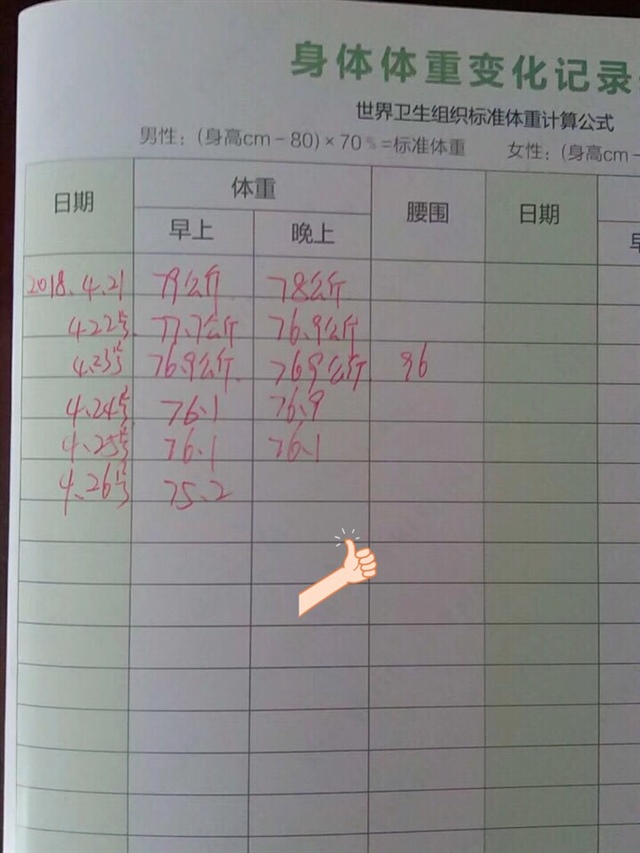 身体体重变化记录
世界卫生组织标准体重计算公式
男性：(身高cm－80)×70％=标准体重 女性：(身高cm－
日期 体重 腰围 日期
早上 晚上 早
2018.4.21 79公斤 78公斤
4.22号 77.7公斤 76.9公斤
4.23号 76.9公斤 76.9公斤 96
4.24号 76.1 76.9
4.25号 76.1 76.1
4.26号 75.2